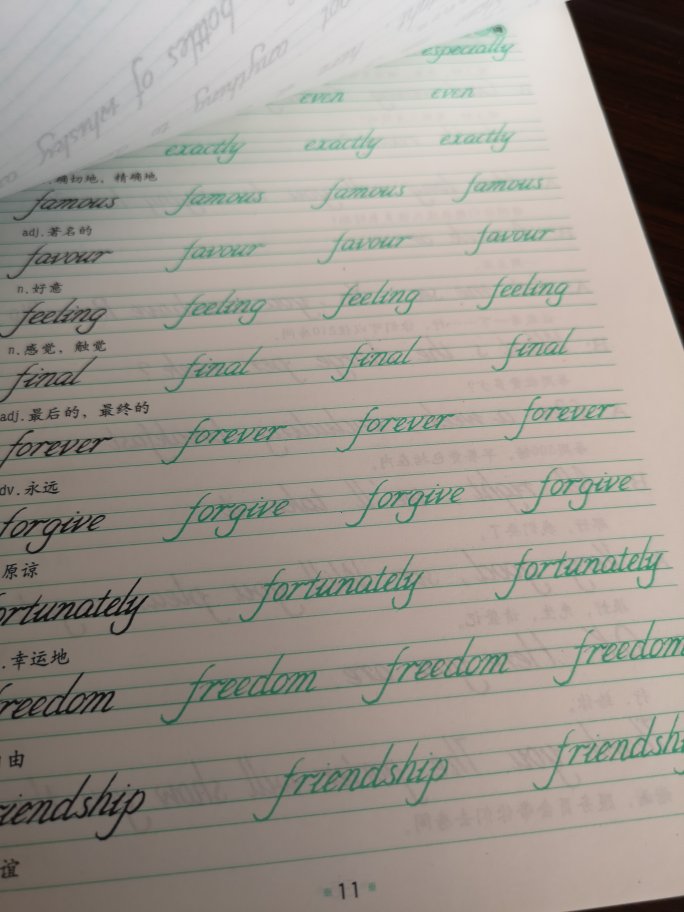 bottles of whisky
anything
especially
even even
exactly exactly exactly
确切地，精确地
famous famous famous famous
adj.著名的
favour favour favour favour
n.好意
feeling feeling feeling feeling
n.感觉，触觉
final final final final
adj.最后的，最终的
forever forever forever forever
dv.永远
forgive forgive forgive forgive
原谅
ortunately fortunately fortunately
.幸运地
reedom freedom freedom freedom
由
riendship friendship friendsh
谊
11